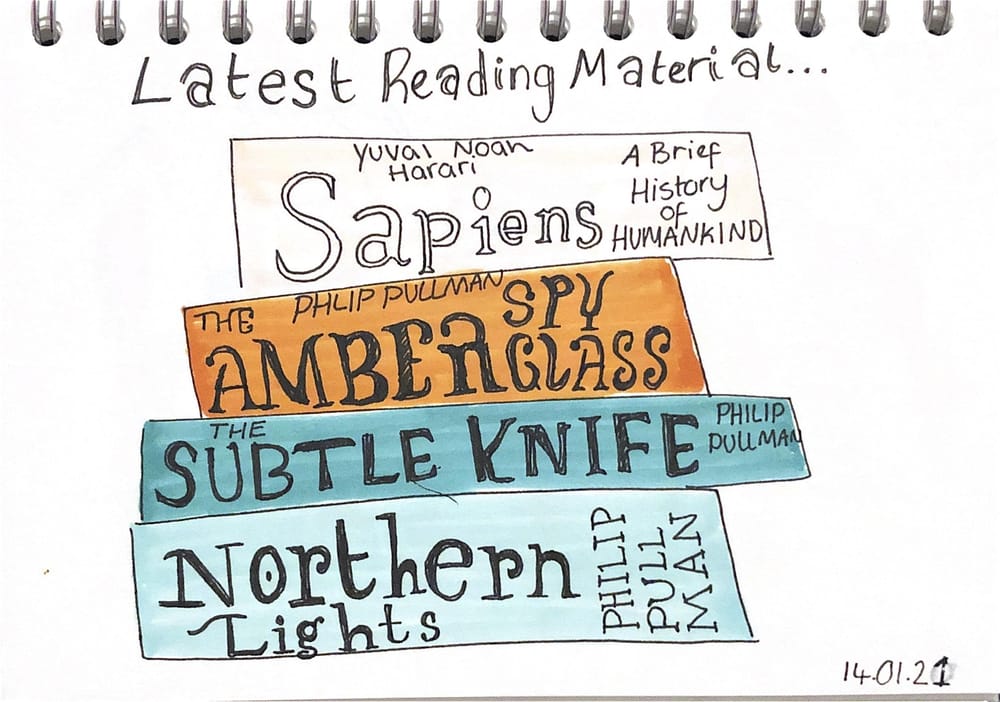 Latest Reading Material...
Yuval Noah
Harari
Sapiens
A Brief
History
of
HUMANKIND
THE
PHLIP PULLMAN
AMBER
SPY
GLASS
THE
SUBTLE KNIFE
PHILIP
PULLMAN
Northern
Lights
PHILIP
PULL
MAN
14.01.21